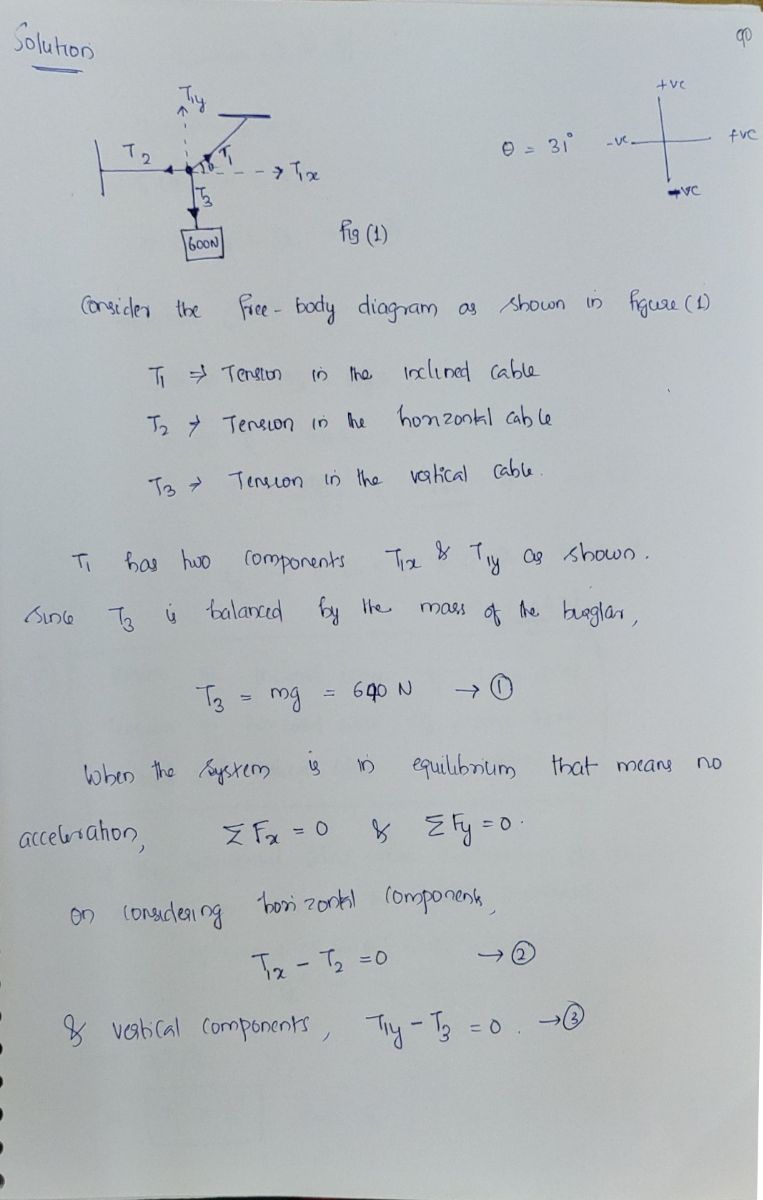 Solution
90
T1y
+ve
T2
T1
θ
T1x
θ = 31°
-ve
+ve
T3
-ve
600N
fig (1)
Consider the free-body diagram as shown in figure (1)
T1 ⇒ Tension in the inclined cable
T2 → Tension in the horizontal cable
T3 → Tension in the vertical cable.
T1 has two components T1x & T1y as shown.
Since T3 is balanced by the mass of the burglar,
T3 = mg = 600 N → ①
When the system is in equilibrium that means no
acceleration, ΣFx = 0 & ΣFy = 0.
on considering horizontal components,
T1x - T2 = 0 → ②
& vertical components, T1y - T3 = 0. → ③